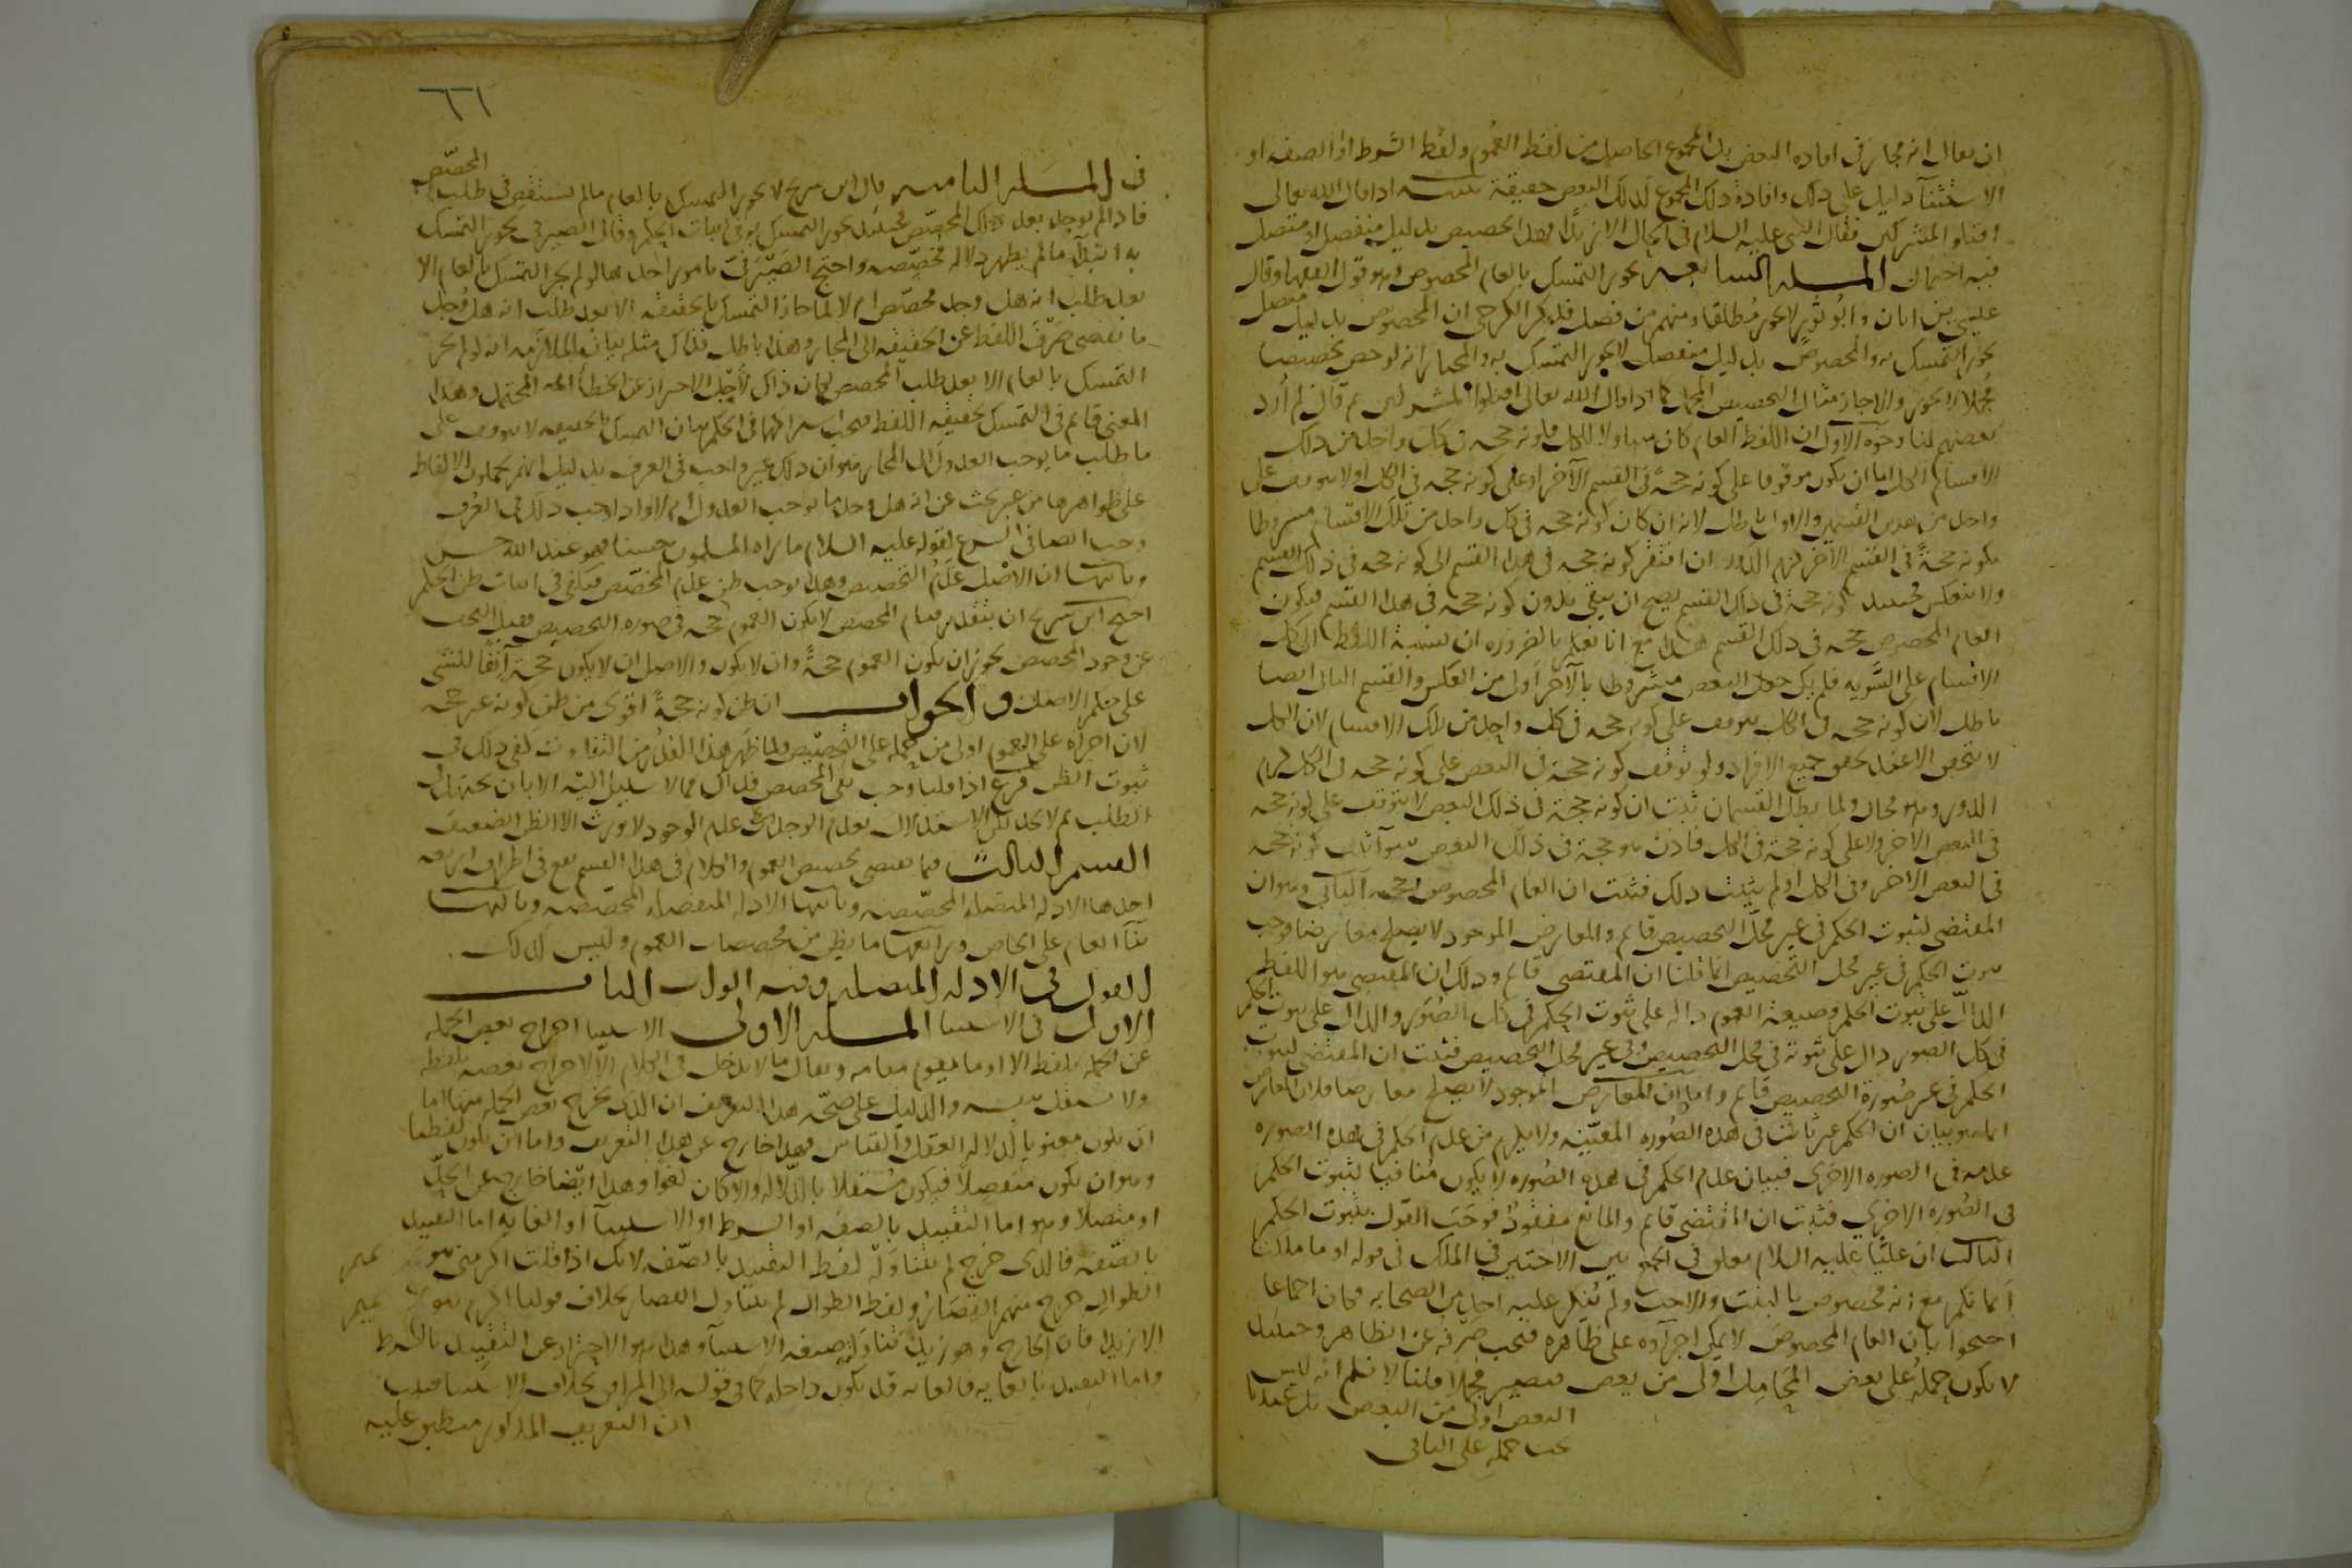 ان يقال انه مجاز في افادة البعض بل المجموع الحاصل من لفظ العموم ولفظ الشرط او الصفه او
الاستثنآ دليل على ذلك وافادة ذلك المجموع لذلك البعض حقيقة اذا قال الله تعالى
اقتلوا المشركين فقال النبى عليه السلام فى الحال الا زيدًا فهل هذا تخصيص بدليل منفصل او متصل
فيه احتمال المسله السابعه يجوز التمسك بالعام المخصوص وهو قول الفقها وقال
عيسى بن ابان وابُو ثور لا يجوز مُطلقا ومنهم من فصل فذكر الكرخى ان المخصوص بدليل متصل
يجوز التمسك به والمخصوص بدليل منفصل لا يجوز التمسك به والمختار انه لو خص تخصيصا
مُجملا لا يجوز والا جاز مثال التخصيص المجمل كما اذا قال الله تعالى اقتلوا المشركين ثم قال لم أُرد
بعضهم لنا وجوه الاول ان اللفظ العام كان متناولا للكل فكونه حجه فى كل واحد من تلك
الاقسام اما ان يكون موقوفا على كونه حجةً فى القسم الآخر او على كونه حجه فى الكل او لا يتوقف على
واحد من هذين القسمين والاول باطل لانه ان كان كونه حجه فى كل واحد من تلك الاقسام مشروطا
بكونه حجةً فى القسم الآخر لزم الدور ان افتقر كونه حجه فى هذا القسم الى كونه حجه فى ذلك القسم
ولا ينعكس فحينيذ كونه حجة فى ذلك القسم يصح ان يبقى بدون كونه حجه فى هذا القسم فيكون
العام المخصوص حجه فى ذلك القسم هذا مع انا نعلم بالضروره ان نسبة اللفظ الى كل
الاقسام على السَّويه فلم يكن جعل البعض مشروطا بالآخر أولى من العكس والقسم الثانى ايضا
باطل لان كونه حجه فى الكل يتوقف على كونه حجه فى كل واحد من تلك الاقسام لان الكل
لا يتحقق الا عند تحقق جميع الافراد ولو توقف كونه حجة فى البعض على كونه حجه فى الكل لزم
الدور وهو محال ولما بطل القسمان ثبت ان كونه حجة فى ذلك البعض لا يتوقف على كونه حجه
فى البعض الآخر ولا على كونه حجة فى الكل فاذن هو حجة فى ذلك البعض سوآ ثبت كونه حجه
فى البعض الآخر وفى الكل او لم يثبت ذلك فثبت ان العام المخصوص حجه الثانى وهو ان
المقتضى لثبوت الحكم فى غير محلّ التخصيص قائم والمعارض الموجود لا يصلح معارضا فوجب
ثبوت الحكم فى غير محل التخصيص انما قلنا ان المقتضى قائم وذلك ان المقتضى هو اللفظ
الدالّ على ثبوت الحكم وصيغة العموم دالة على ثبوت الحكم فى كل الصُوَر والدال على ثبوت الحكم
فى كل الصور دال على ثبوته فى محل التخصيص وفى غير محل التخصيص فثبت ان المقتضى لثبوت
الحكم فى غير صُورة التخصيص قائم واما ان المعارض الموجود لا يصلح معارضا فلان المعارض
انما هو بيان ان الحكم غير ثابت فى هذه الصُوره المعيّنه ولا يلزم من عدم الحكم فى هذه الصوره
عدمه فى الصوره الاخرى فبيان عدم الحكم فى هذه الصُوره لا يكون مُنافيا لثبوت الحكم
فى الصُوره الاخرى فثبت ان المقتضى قائم والمانع مفقود فوَجَبَ القول بثبوت الحكم
الثالث ان عليًا عليه السلام تعلق فى الجمع بين الاختين فى الملك فى قوله او ما ملكت
ايمانكم مع انه مخصوص بالبنت والاخت ولم يُنكر عليه احد من الصحابه فكان اجماعا
احتجوا بان العام المخصوص لا يمكن اجرآؤه على ظاهره فيجب صرفهُ عن الظاهر وحينيذ
لا يكون حملهُ على بعض المحامل اولى من بعض فيصير مجملا قلنا لا نسلم انه ليس
البعض اولى من البعض بل عندنا
يجب حمله على الباقى
٦٦١
فى المسَله الثامنه قال ابن سريج لا يجوز التمسك بالعام ما لم يستقص فى طلب المخصّص
فاذا لم يوجد بعد ذلك المخصّص فحينيذ يجوز التمسك به فى اثبات الحكم وقال الصيرفى يجوز التمسك
به ابتدآً ما لم يظهر دلالة مخصّصه واحتج الصَيْرَفىّ بامور احدها لو لم يجز التمسك بالعام الا
بعد طلب انه هل وجد مخصّص ام لا لما جاز التمسك بالحقيقه الا بعد طلب انه هل وُجد
ما يقتضى صَرْفَ اللفظ عن الحقيقه الى المجاز وهذا باطل فذاك مثله بيان الملازمه انه لو لم يجز
التمسك بالعام الا بعد طلب المخصص لكان ذاك لأجْل الاحتراز عن الخطأ المحتمل وهذا
المعنى قائم فى التمسك بحقيقه اللفظ فيجب اشتراكهما فى الحكم بيان التمسك بالحقيقه لا يتوقف على
طلب ما يوجب العدول الى المجاز هو ان ذلك غير واجب فى العرف بدليل انهم يحملون الالفاظ
على ظواهرها من غير بحث عن انه هل وجد ما يوجب العدول ام لا واذا وجب ذلك فى العُرف
وجب ايضا فى الشرع لقوله عليه السلام ما رآه المسلمون حسنا فهو عند الله حسن
وثانيها ان الاصل عَدَمُ التخصيص وهذا يوجب ظن عدم المخصّص فيكفى فى اثبات ظن الحكم
احتج ابن سريج ان بتقدير قيام المخصص لا يكون العموم حجه فى صوره التخصيص فقبل البحث
عن وجود المخصص يجوز ان يكون العموم حجةً وان لا يكون والاصل ان لا يكون حجة
على حكم الاصل والجواب ان ظن كونه حجةً اقوى من ظن كونه غير حجه
لان اجرآه على العموم اولى من حمله على التخصيص ولما ظهر هذا القدْرُ من التفاوت كفى ذلك فى
ثبوت الظن فرع اذا قلنا وجب نفى المخصص فذاك مما لا سبيل اليه الا بان يجتهد فى
الطلب ثم لا يجد لكن الاستدلال بعدم الوجدان على عدم الوجود لا يورث الا الظن الضعيف
القسم الثالث فيما يقتضى تخصيص العموم والكلام فى هذا القسم يقع فى اطراف اربعه
احدها الادله المتصله المخصّصه وثانيها الادله المنفصله المخصّصه وثالثها
بنآ العام على الخاص ورابعها ما يظن من مخصصات العموم وليس كذلك .
القول فى الادله المتصله وفيه ابواب الباب
الاول فى الاستثنا المسله الاولى الاستثنا اخراج بعض الجمله
عن الجمله بلفظ الا او ما يقوم مقامه ويقال ما لا يدخل فى الكلام الّا لاخراج بعضه بلفظه
ولا يستقل بنفسه والدليل على صحّة هذا التعريف ان الذى يخرج بعض الجمله منها اما
ان يكون معنويا كدلالة العقل والقياس فهذا خارج عن هذا التعريف واما ان يكون لفظيا
وهو ان يكون منفصلاً فيكون مُستقلا بالدّلاله والا كان لغوًا وهذا ايضًا خارج عن الحدّ
او متصلاً وهو اما التقييد بالصفة او الشرط او الاستثنآ او الغايه اما التقييد
بالصّفه فالذى خرج لم يتناوله لفظ التقييد بالصّفه لانك اذا قلت اكرمنى بنو تميم
الطوال خرج منهم القصَارُ ولفظ الطوال لم يتناول القصار بخلاف قولنا اكرم بنو تميم
الا زيدًا فان الخارج وهو زيد تناوله صيغه الاستثنآ وهذا هو الاحتراز عن التقييد بالشرط
واما التقييد بالغايه فالغايه قد يكون داخله كما فى قوله الى المرافق بخلاف الاستثنا فثبت
ان التعريف المذكور منطبق عليه